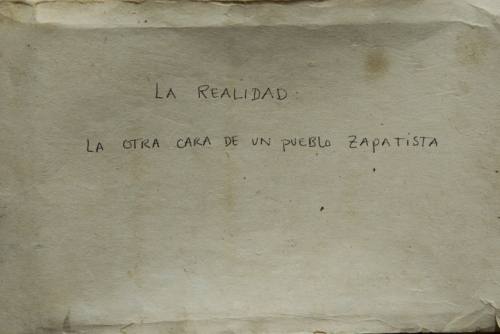 LA REALIDAD:
LA OTRA CARA DE UN PUEBLO ZAPATISTA